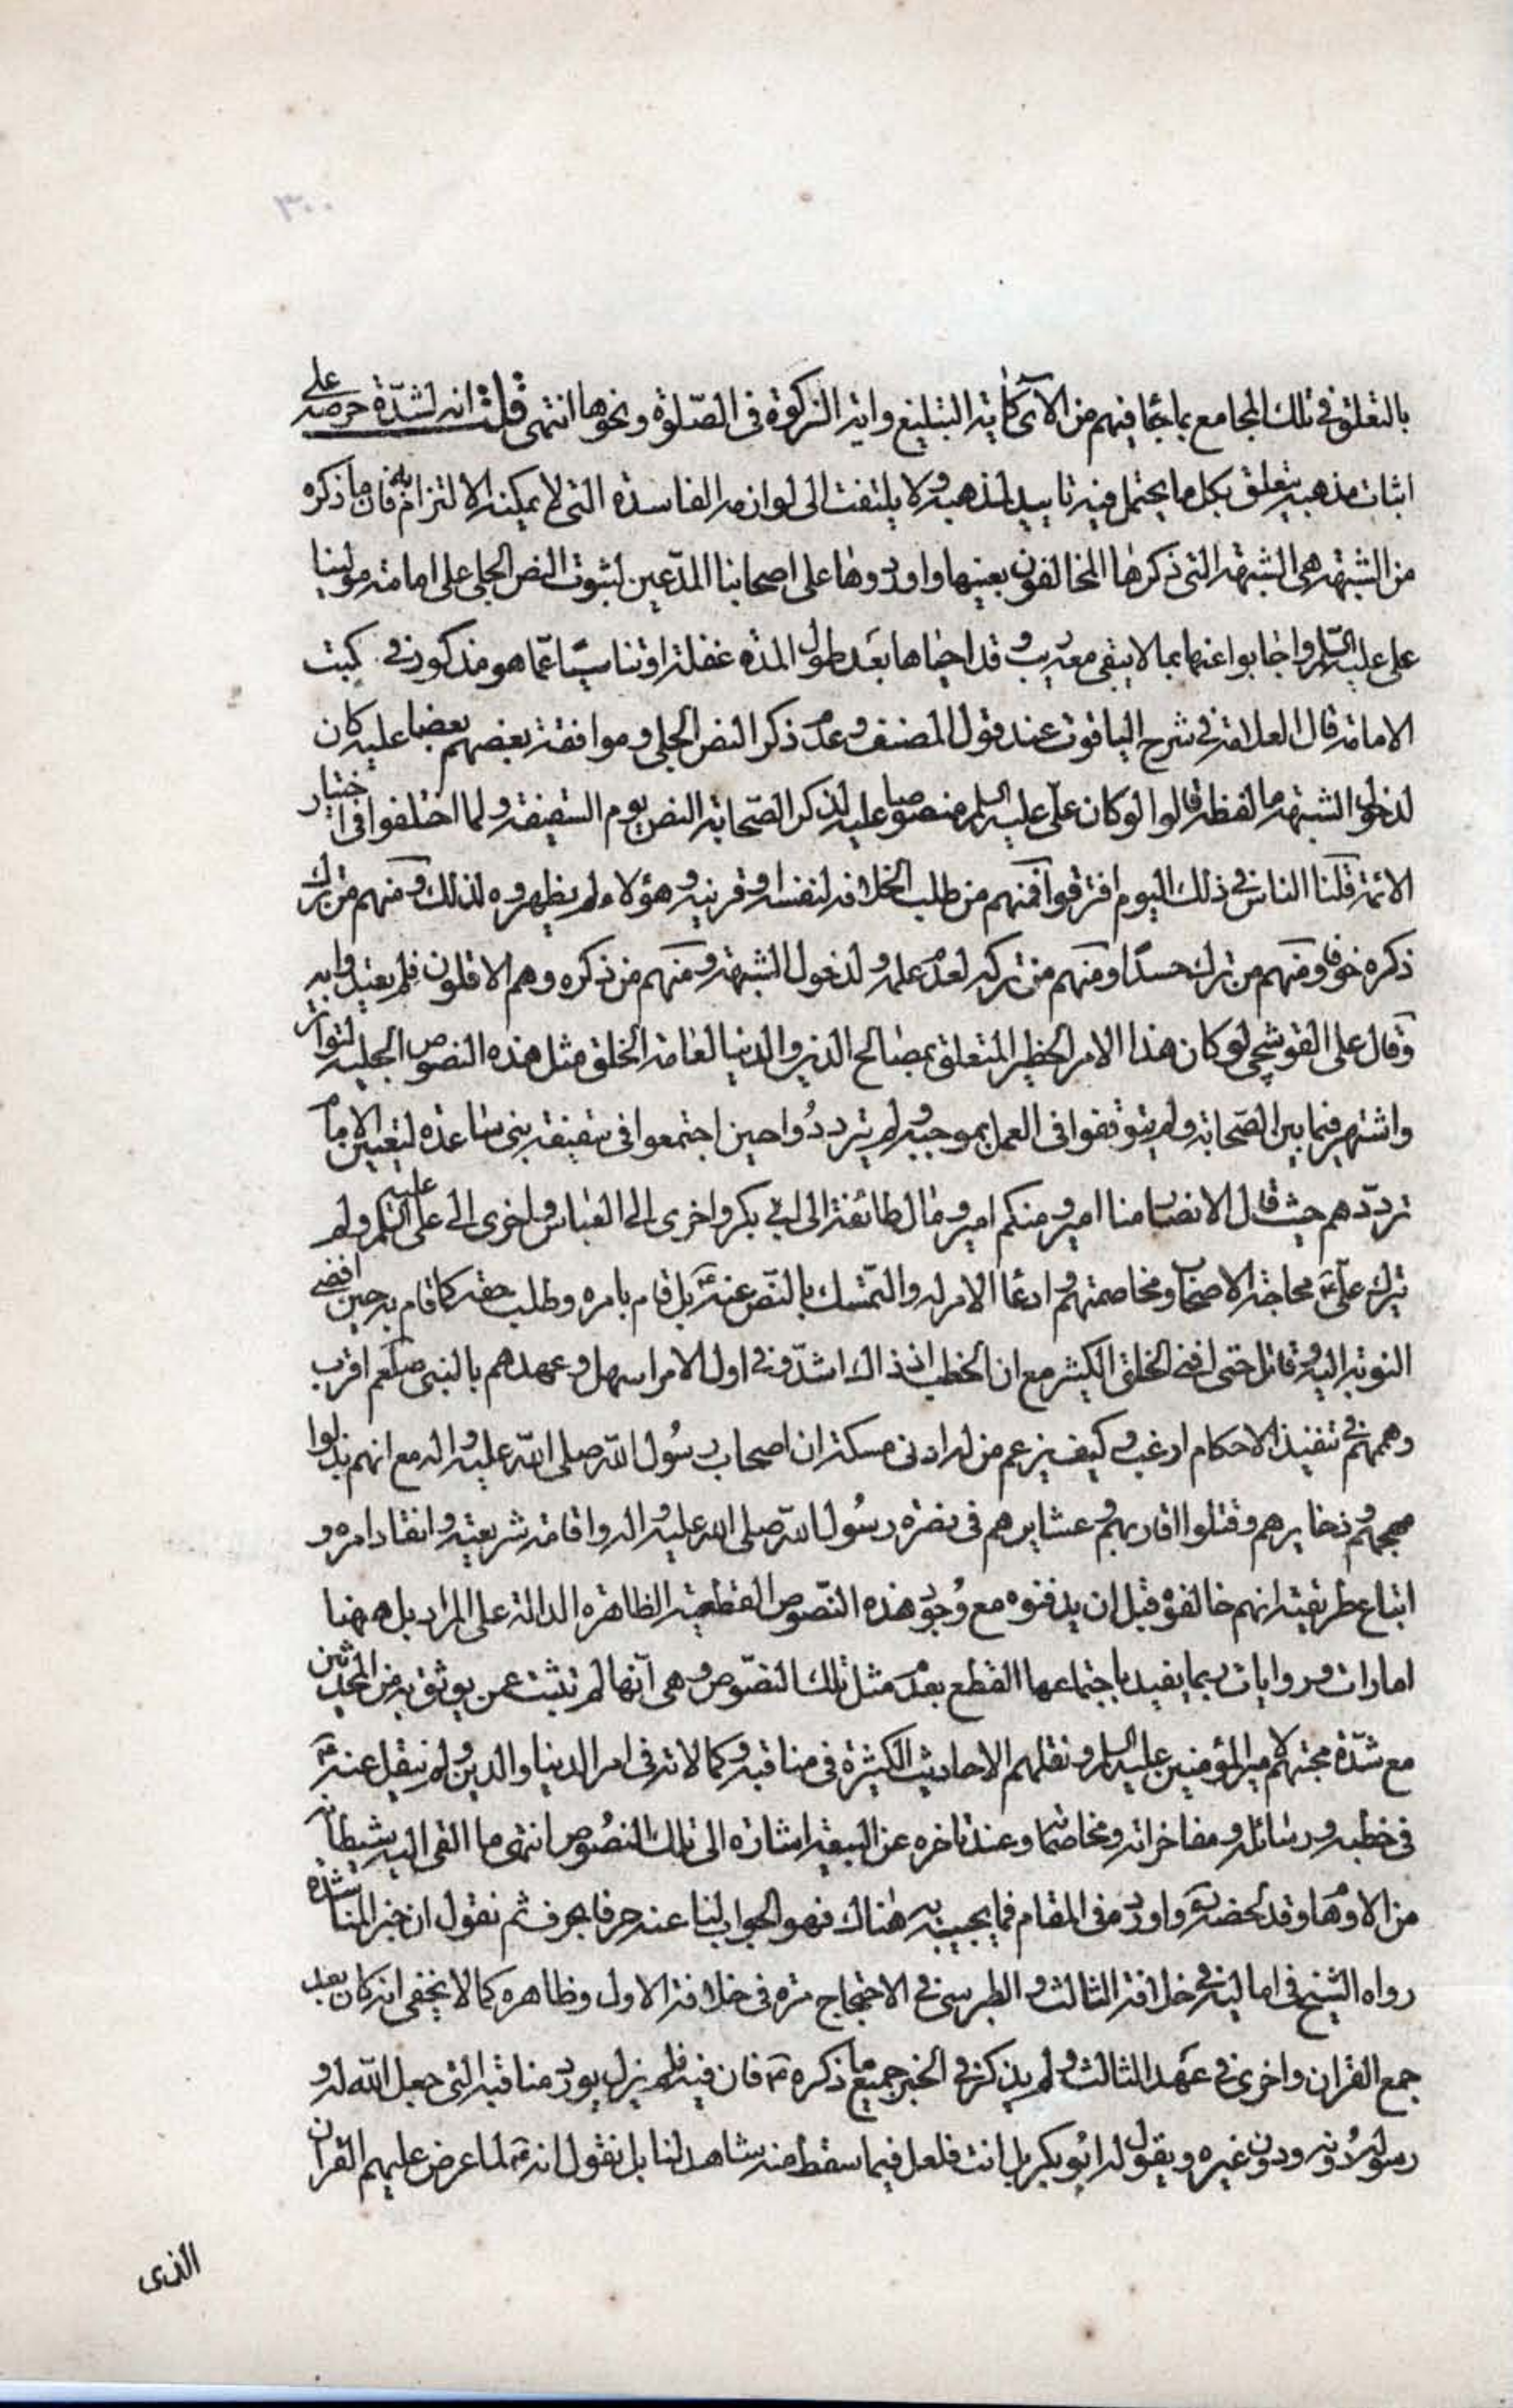 ٣٠٠
بالتعلق في تلك المجامع بما جاء فيهم من الآي كآية التبليغ واية الزكوة في الصّلوة ونحوها انتهى قلت انه لشدّة حرصه على
اثبات مذهبه يتعلق بكل ما يحتمل فيه تاييد لمذهبه ولا يلتفت الى لوازمه الفاسدة التي لا يمكنه الالتزام به فان ما ذكره
من الشبهة هي الشبهة التي ذكرها المخالفون بعينها واوردوها على اصحابنا المدّعين لثبوت النص الجلي على امامة مولينا
علي عليه السّلم واجابوا عنها بما لا يبقى معه ريب وقد احياها بعد طول المدة غفلة او تناسيًا عمّا هو مذكور في كتب
الامامة قال العلامة في شرح الياقوت عند قول المصنف وعدم ذكر النص الجلي وموافقة بعضهم بعضا عليه كان
لدخول الشبهة ما لفظه قالوا لو كان علي عليه السلم منصوصا عليه لذكر الصّحابة النص يوم السقيفة ولما اختلفوا في اختيار
الائمة قلنا الناس في ذلك اليوم افترقوا فمنهم من طلب الخلافة لنفسه او قرينه وهؤلاء لم يظهروه لذلك ومنهم من ترك
ذكره خوفا ومنهم من ترك حسدًا ومنهم من تركه لعدم علمه ولدخول الشبهة ومنهم من ذكره وهم الاقلون فلم يعتدوا به
وقال علي القوشچي لو كان هذا الامر الخطير المتعلق بمصالح الدين والدنيا لعامة الخلق مثل هذه النصوص الجلية لتواتر
واشتهر فيما بين الصّحابة ولم يتوقفوا في العمل بموجبه ولم يتردّدُوا حين اجتمعوا في سقيفة بني ساعدة لتعيين الامام
تردّدهم حيث قال الانصار منا امير ومنكم امير ومال طائفة الى ابي بكر واخرى الى العباس واخرى الى علي عليه السلم ولم
يترك عليّ ع محاجة الاصحاب ومخاصمتهم وادعاء الامر له والتّمسك بالنّص عنه ع بل قام بامره وطلب حقه كما قام به حين افضى
النوبة اليه وقاتل حتى افنى الخلق الكثير مع ان الخطب اذ ذاك اشدّ وفي اول الامر اسهل وعهدهم بالنبي صلعم اقرب
وهمهم في تنفيذ الاحكام ارغب وكيف يزعم من له ادنى مسكة ان اصحاب رسُول الله صلى الله عليه واله مع انهم بذلوا
مهجهم وذخايرهم وقتلوا اقاربهم وعشايرهم في نصرة رسُول الله صلى الله عليه واله واقامة شريعته وانقاد امره و
اتباع طريقته انهم خالفوه قبل ان يدفنوه مع وُجود هذه النّصوص القطعية الظاهرة الدالة على المراد بل ههنا
امارات وروايات ربما يفيد باجتماعها القطع بعدم مثل تلك النصّوص وهي أنّها لم تثبت عمن يوثق به من المحدّثين
مع شدّة محبتهم لامير المؤمنين عليه السلم ونقلهم الاحاديث الكثيرة في مناقبه وكمالاته في امر الدنيا والدين ولم ينقل عنه ع
في خطبه ورسائله ومفاخراته ومخاصماته وعند تاخره عن البيعة اشارة الى تلك النصُوص انتهى ما القى اليه شيطانه
من الاوهام وقد لخصه ره واورده في المقام فما يجيب به هناك فهو الجواب لنا عنه حرفا بحرف ثم نقول ان خبر المناشدة
رواه الشيخ في اماليه في خلافة الثالث والطبرسي في الاحتجاج مرة في خلافة الاول وظاهره كما لا يخفى انه كان بعد
جمع القران واخرى في عهد الثالث ولم يذكر في الخبر جميع ما ذكره ع فان فيه فلم يزل يورد مناقبه التي جعل الله له و
رسوله دُونه ودون غيره ويقول له ابُو بكر بل انت فلعل فيما سقط منه شاهد لنا بل نقول انه ع لما عرض عليهم القران
الذي